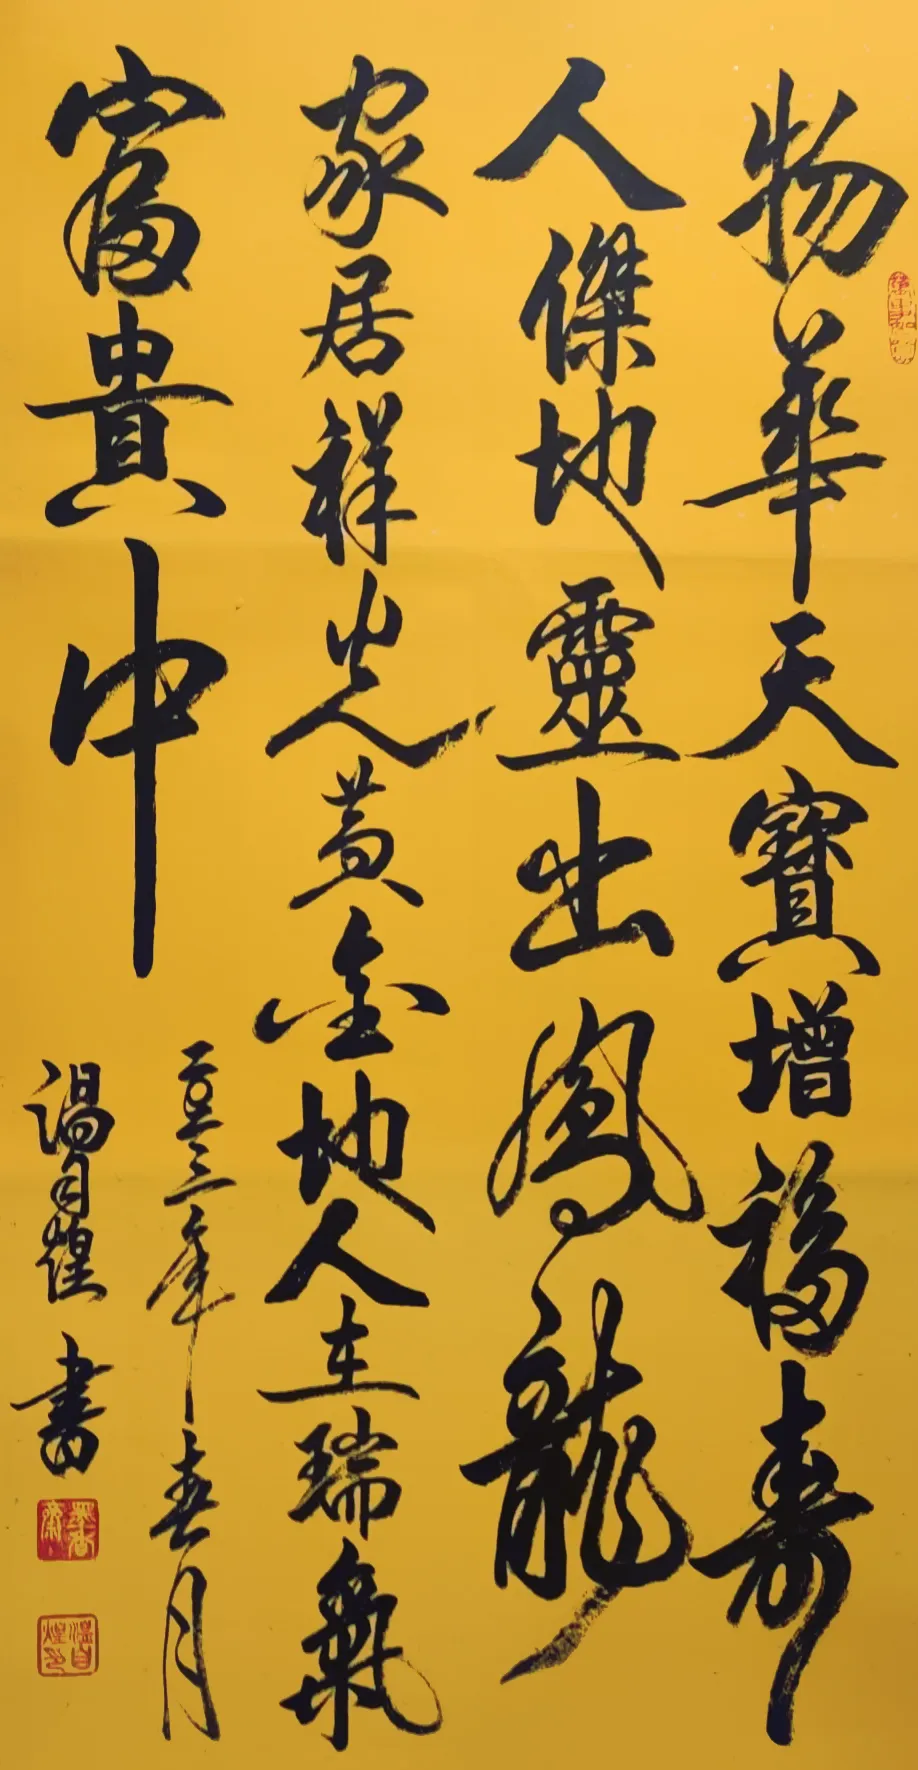 物華天寶增福壽
人傑地靈出鳳龍
家居祥光黃金地人在瑞氣
富貴中
二〇二三年春月
湯自煌書